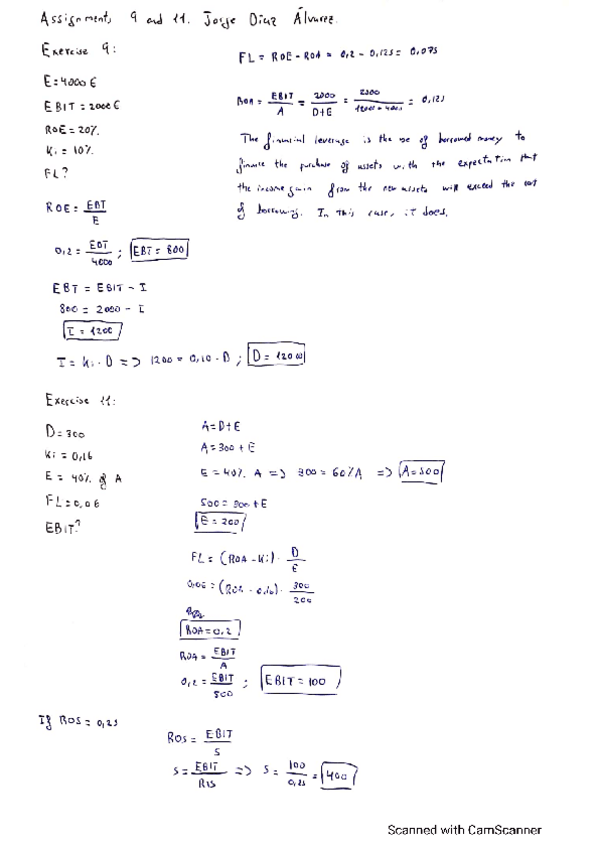 Assignments 9 and 11. Jorge Díaz Álvarez.
Exercise 9:
E = 4000 €
EBIT = 2000 €
ROE = 20%
Ki = 10%
FL?
ROE = EBT / E
0,2 = EBT / 4000 ; EBT = 800
EBT = EBIT - I
800 = 2000 - I
I = 1200
I = Ki · D => 1200 = 0,10 · D ; D = 12000
FL = ROE - ROA = 0,2 - 0,125 = 0,075
ROA = EBIT / A = 2000 / D+E = 2000 / 12000 + 4000 = 0,125
The financial leverage is the use of borrowed money to
finance the purchase of assets with the expectation that
the income gain from the new assets will exceed the cost
of borrowing. In this case, it does.
Exercise 11:
D = 300
Ki = 0,16
E = 40% of A
FL = 0,06
EBIT?
A = D+E
A = 300 + E
E = 40% A => 300 = 60% A => A = 500
500 = 300 + E
E = 200
FL = (ROA - Ki) · D / E
0,06 = (ROA - 0,16) · 300 / 200
ROA = 0,2
ROA = EBIT / A
0,2 = EBIT / 500 ; EBIT = 100
If ROS = 0,25
ROS = EBIT / S
S = EBIT / ROS => S = 100 / 0,25 = 400
Scanned with CamScanner